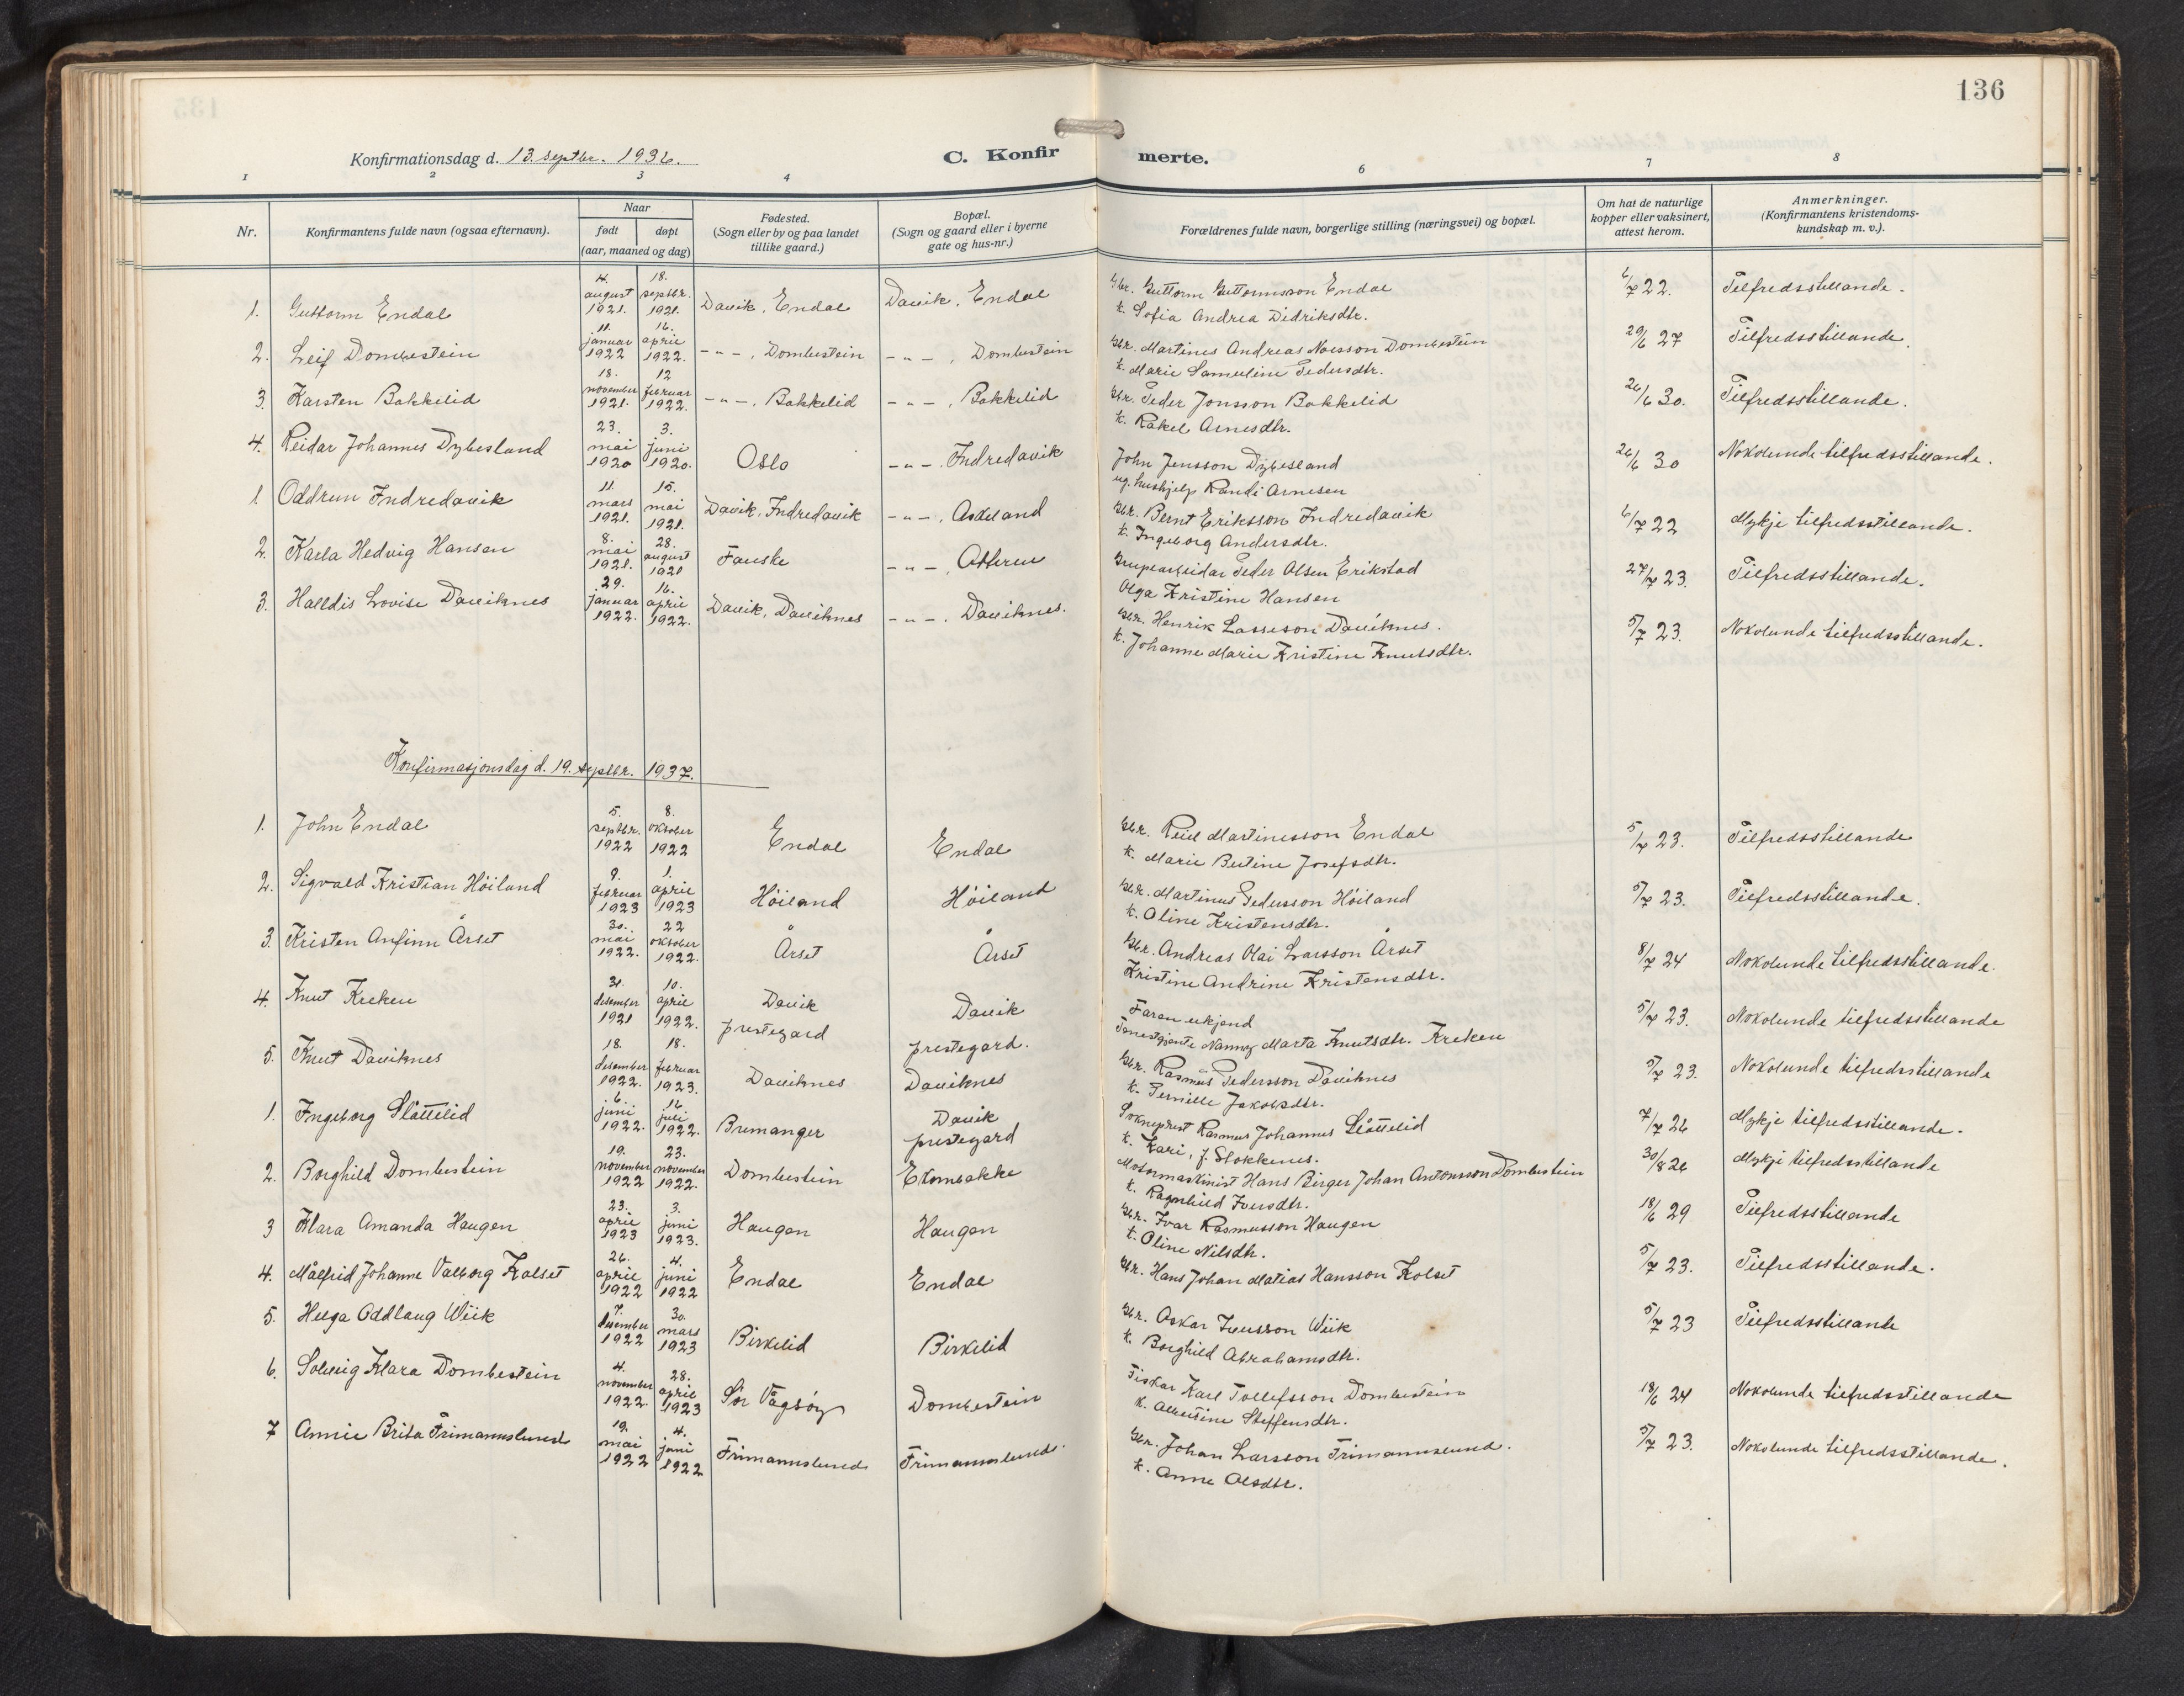 136
Konfirmationsdag d. 13. septbr. 1936.
C. Konfirmerte.
1 2 3 4 6 7 8
Nr.
Konfirmantens fulde navn (ogsaa efternavn).
Naar
født døpt
(aar, maaned og dag)
Fødested.
(Sogn eller by og paa landet
tillike gaard.)
Bopæl.
(Sogn og gaard eller i byerne
gate og hus-nr.)
Forældrenes fulde navn, borgerlige stilling (næringsvei) og bopæl.
Om hat de naturlige
kopper eller vaksinert,
attest herom.
Anmerkninger.
(Konfirmantens kristendoms-
kundskap m. v.).
1. Guttorm Endal 4. august 1921. 18. septbr. 1921. Davik, Endal Davik, Endal Gbr. Guttorm Guttormsson Endal 6/7 22. Tilfredsstillande.
k. Sofia Andrea Didriksdtr.
2. Leif Dombestein 11. januar 1922 16. april 1922. -"-, Dombestein -"-, Dombestein Gbr. Martines Andreas Nilsson Dombestein 29/6 27 Tilfredsstillande.
k. Marie Samueline Pedersdtr.
3. Karsten Bakkelid 18. november 1921. 12 februar 1922. -"-, Bakkelid -"-, Bakkelid Gbr. Peder Jonsson Bakkelid 26/6 30. Tilfredsstillande.
k. Rakel Arnesdtr.
4. Reidar Johannes Dybesland 23. mai 1920 3. juni 1920. Oslo -"-, Indredavik John Jensson Dybesland 26/6 30 Nokolunde tilfredsstillande.
ug. hushjelp Randi Arnesen
1 Oddrun Indredavik 11. mars 1921. 15. mai 1921. Davik, Indredavik -"-, Askeland Gbr. Bernt Eriksson Indredavik 6/7 22 Mykje tilfredsstillande.
k. Ingeborg Andersdtr.
2. Karla Hedvig Hansen 8. mai 1921. 28. august 1921 Fauske -"-, Otteren Grupearbeidar Peder Olsen Erikstad 27/7 23. Tilfredsstillande.
Olga Kristine Hansen
3. Halldis Lovise Daviknes 29. januar 1922. 16. april 1922. Davik, Daviknes -"-, Daviknes. Gbr. Henrik Lasseson Daviknes. 5/7 23. Nokolunde tilfredsstillande.
k. Johanne Marie Kristine Knutsdtr.
Konfirmasjonsdag d. 19. septbr. 1937.
1. John Endal 5. septbr. 1922 8. oktober 1922 Endal Endal Gbr. Reiel Martinesson Endal 5/7 23. Tilfredsstillande
k. Marie Bertine Josefsdtr.
2. Sigvald Kristian Höiland 9. februar 1923 1. april 1923 Höiland Höiland Gbr. Martinus Pedersson Höiland 5/7 23. Tilfredsstillande.
k. Oline Kristensdtr.
3. Kristen Anfinn Årset 30. mai 1922. 22 oktober 1922. Årset Årset Gbr. Andreas Olai Larsson Årset 8/7 24 Nokolunde tilfredsstillande.
Kristine Andrine Kristensdtr.
4. Knut Kreken 31. desember 1921 10. april 1922. Davik prestegard Davik prestegard. Faren ukjend 5/7 23. Nokolunde tilfredsstillande
Tenestgjente Nanny Marta Knutsdtr. Kreken
5. Knut Daviknes 18. desember 1922. 18. februar 1923. Daviknes Daviknes Gbr. Rasmus Pedersson Daviknes 5/7 23. Nokolunde tilfredsstillande
k. Pernille Jakobsdtr.
1. Ingeborg Slåttelid 6. juni 1922. 16. juli 1922. Bremanger Davik prestegard Sokneprest Rasmus Johannes Slåttelid 7/7 26 Mykje tilfredsstillande.
k. Kari, f. Stokkenes.
2. Borghild Dombestein 19. november 1922 23. november 1922. Dombestein Ekombakke Motormaskinist Hans Birger Johan Antonsson Dombestein 30/8 26 Mykje tilfredsstillande
k. Ragnhild Iversdtr.
3 Klara Amanda Haugen 23. april 1923 3. juni 1923. Haugen Haugen Gbr. Ivar Rasmusson Haugen 18/6 29 Tilfredsstillande
k. Oline Nilsdtr.
4. Målfrid Johanne Valborg Kolset 26. april 1922 4. juni 1922 Endal Endal Gbr. Hans Johan Matias Hansson Kolset 5/7 23. Tilfredsstillande.
5. Helga Oddlaug Wiik 7. desember 1922 30. mars 1923 Birkelid Birkelid Gbr. Oskar Iversson Wiik 5/7 23 Tilfredsstillande
k. Borghild Abrahamsdtr.
6. Solveig Klara Dombestein 4. november 1922. 28. april 1923 Sör Vågsöy Dombestein Fiskar Karl Tollefsson Dombestein 18/6 24 Nokolunde tilfredsstillande
k. Albertine Steffensdtr.
7 Annie Brita Frimannslund 19. mai 1922 4. juni 1922 Frimannslund Frimannslund. Gbr. Johan Larsson Frimannslund. 5/7 23. Nokolunde tilfredsstillande.
k. Anna Olsdtr.